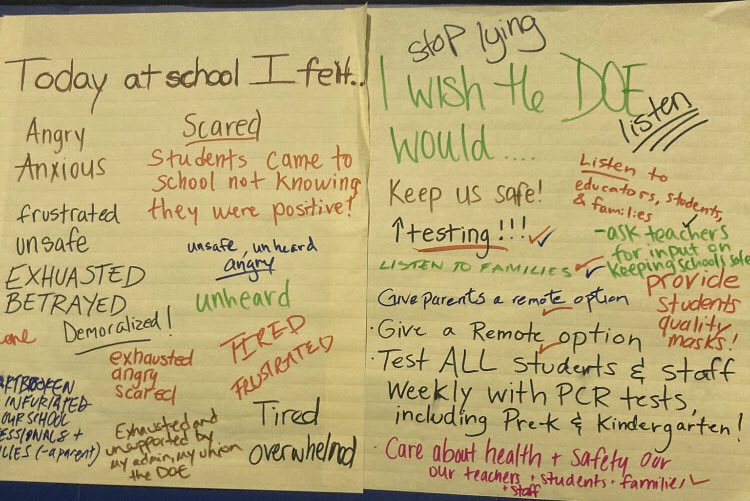 Today at school I felt..
Angry
Anxious
frustrated
unsafe
EXHUASTED
BETRAYED
Demoralized!
exhausted
angry
scared
INFURIATED
OUR SCHOOL
(-a parent)
Exhausted and
unsupported by
my admin, my union
the DOE
Scared
Students came to
school not knowing
they were positive!
unsafe, unheard
angry
unheard
TIRED
FRUSTRATED
Tired
overwhelmed
stop lying
I wish the DOE
would ....
listen
Keep us safe!
↑testing!!!
LISTEN TO FAMILIES
Give parents a remote option
· Give a Remote option
· Test ALL students & staff
Weekly with PCR tests,
including Pre-K & Kindergarten!
· Care about health + safety our
our teachers + students + families
+ staff
Listen to
educators, students,
& families
- ask teachers
for input on
keeping schools safe
provide
students
quality
masks!